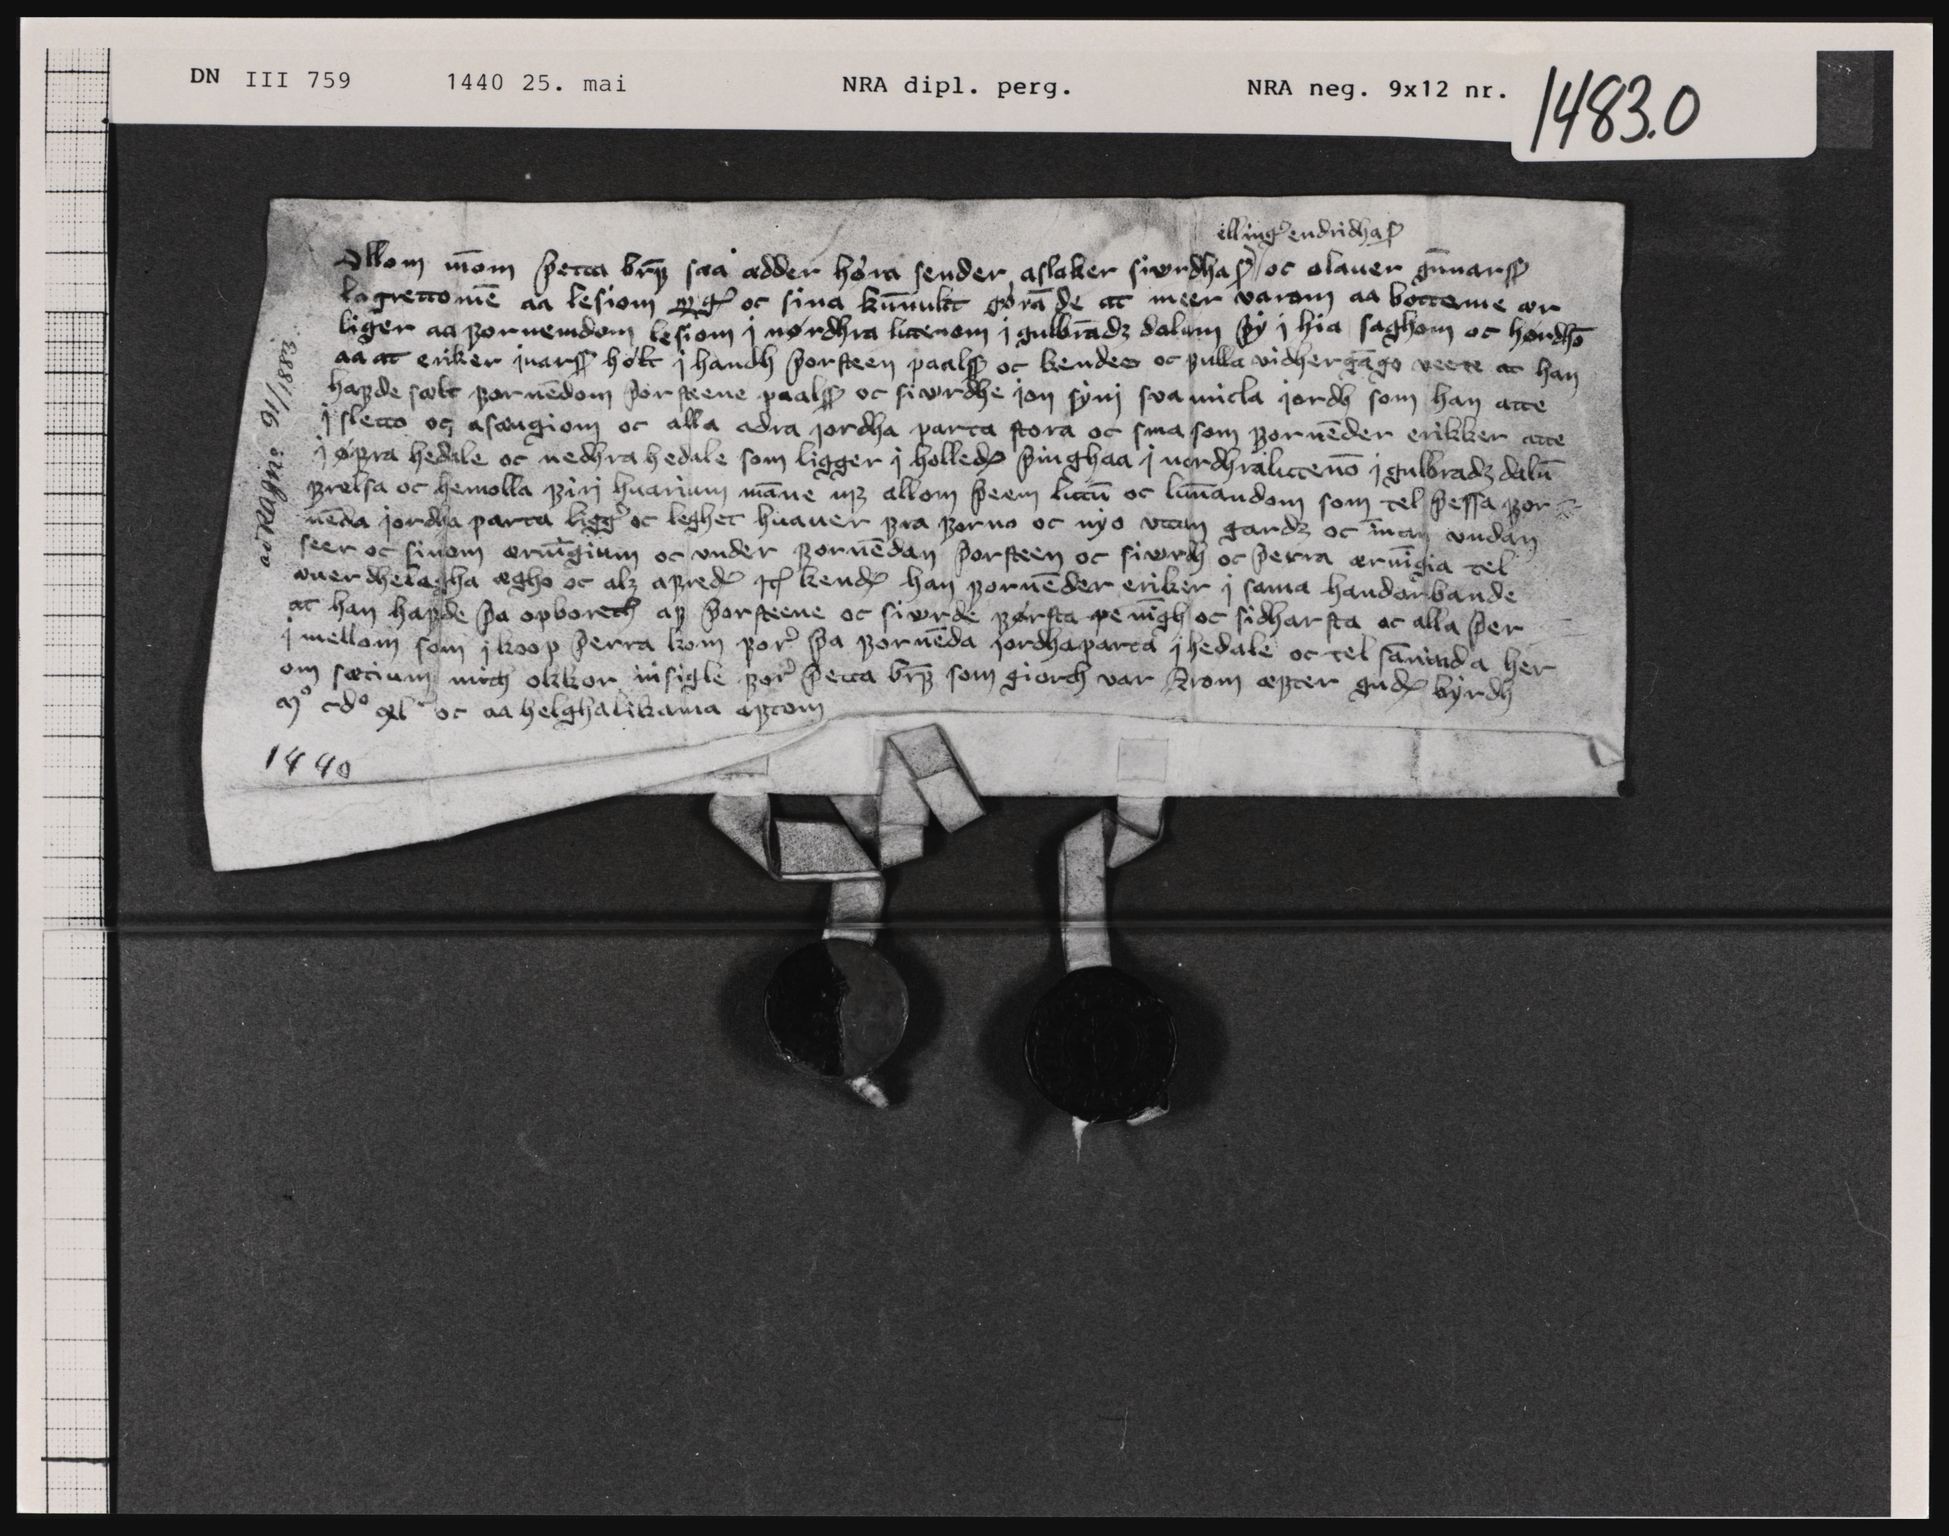 DN III 759 1440 25. mai NRA dipl. perg. NRA neg. 9x12 nr. 1483.0
ellingr endridhas
Ollom mōm þetta breff sæa ædder høra sender aslaker siwrdhas oc olauer gunnarss
lagrettomē aa lesiom q g oc sina kūnukt gørā de at meer varom aa bottenne ær
liger aa fornemdom lesiom j nørdhra luttenom j gulbrādz dalum þy j hia saghom oc hørdhō
aa at eriker juarssholt j handh þorsteen paalss oc kendes oc fulla vidhergāgo veete at han
hafde sælt fornēdom þorsteene paalss oc siwrdhe jon syni sva micla jordh som han atte
j sletto oc asængiom oc alla adra jordha parta stora oc sma som fornēder erikker atte
j øfra hedale oc nedhra hedale som ligger j holledz þinghaa j nørdhraluttenō j gulbradz dalū
frelsa oc hemolla firi huarium māne mz allom þeem luttū oc lunnandom som tel þessa for
nēda jordha parta liggr oc leghet hauer fra forno oc nyo vttan gardz oc īnan vndan
seer oc sinom ærūigium oc vnder fornēdan þorsteen oc siwrdh oc þerra ærūigia tel
æuerdhelægha ægho oc alz afredes Jt kendes han fornēder eriker j sama handarbande
at han hafde þa opboreth af þorsteene oc siwrde førsta peningh oc sidharsta oc alla þer
j mellom som j koop þerra kom for þa fornēda jordhaparta j hedale oc tel sāninda her
om sætium mith okkor insigle for þetta breff som giorth var Arom æpter gudz byrdh
mo cdo xl oc aa helghalikama aptom
1440
ad RA. jno: 16/1883.